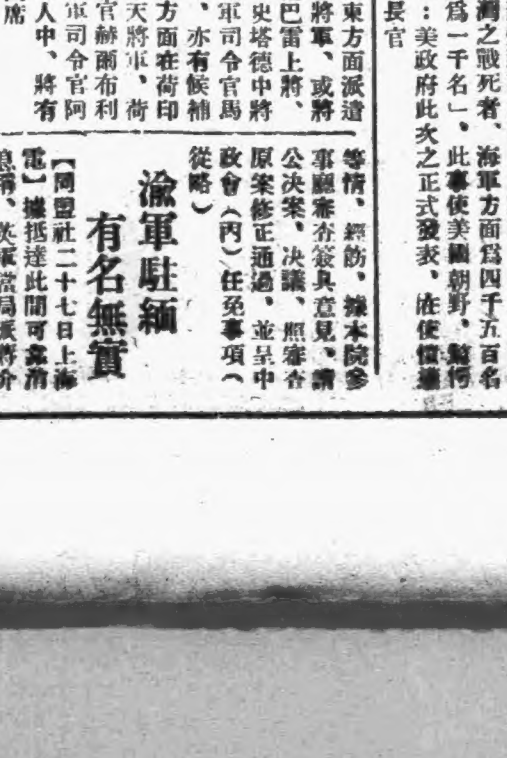 灣之戰死者、海軍方面爲四千五百名
爲一千名」、此事使美國朝野、驚愕
：美政府此次之正式發表、使
長官
東方面派遣
將軍、或將
巴雷上將、
史塔德中將
軍司令官馬
、亦有候補
方面在荷印
天將軍、荷
官赫爾布利
軍司令官阿
人中、將有
席
等情、經飭、據本院參
事廳審査簽具意見、請
公决案、决議、照審査
原案修正通過、並呈中
政會（丙）任免事項（
從略）
渝軍駐緬
有名無實
【同盟社二十七日上海
電】據抵達此間可靠消
息稱、英軍當局派將介